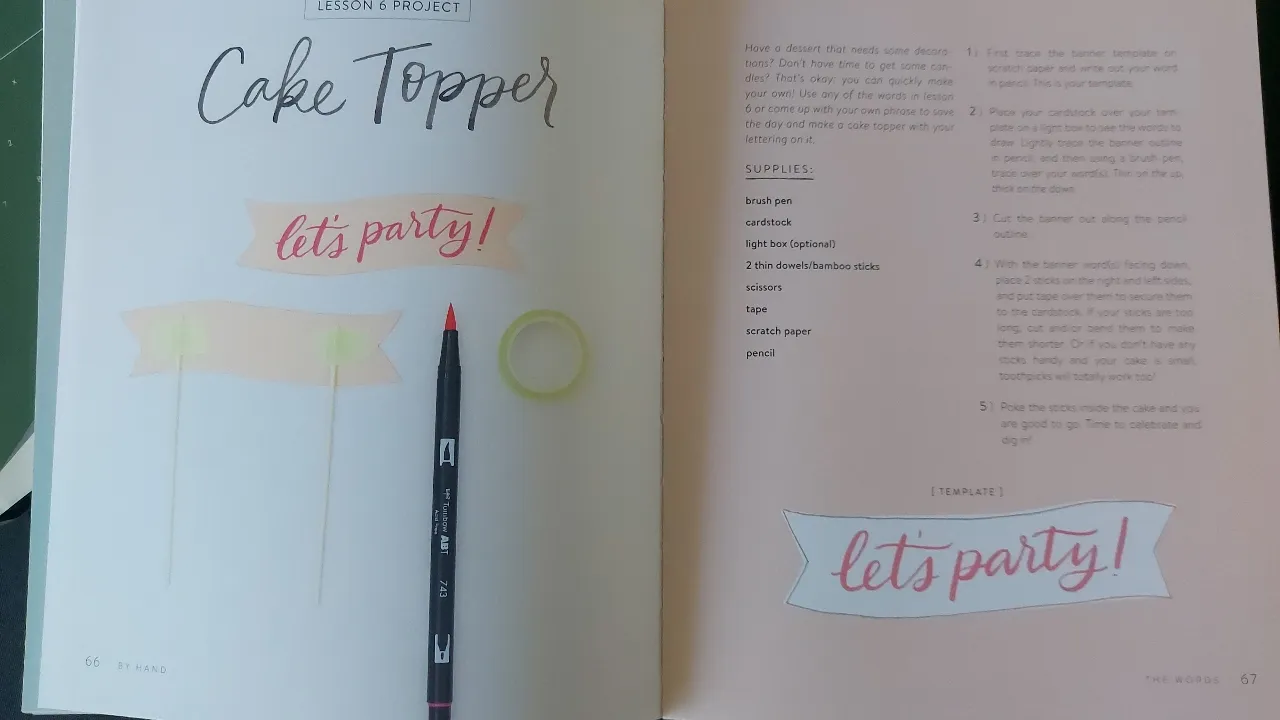 LESSON 6 PROJECT
Cake Topper
let's party!
Tombow ABT
743
66 BY HAND
Have a dessert that needs some decora-
tions? Don't have time to get some can-
dles? That's okay: you can quickly make
your own! Use any of the words in lesson
6 or come up with your own phrase to save
the day and make a cake topper with your
lettering on it.
SUPPLIES:
brush pen
cardstock
light box (optional)
2 thin dowels/bamboo sticks
scissors
tape
scratch paper
pencil
1) First trace the banner template on
scratch paper and write out your word
in pencil. This is your template.
2) Place your cardstock over your tem-
plate on a light box to see the words to
draw. Lightly trace the banner outline
in pencil, and then using a brush pen,
trace over your word(s). Thin on the up,
thick on the down.
3) Cut the banner out along the pencil
outline.
4) With the banner word(s) facing down,
place 2 sticks on the right and left sides,
and put tape over them to secure them
to the cardstock. If your sticks are too
long, cut and/or bend them to make
them shorter. Or if you don't have any
sticks handy and your cake is small,
toothpicks will totally work too!
5) Poke the sticks inside the cake and you
are good to go. Time to celebrate and
dig in!
[ TEMPLATE ]
let's party!
THE WORDS 67